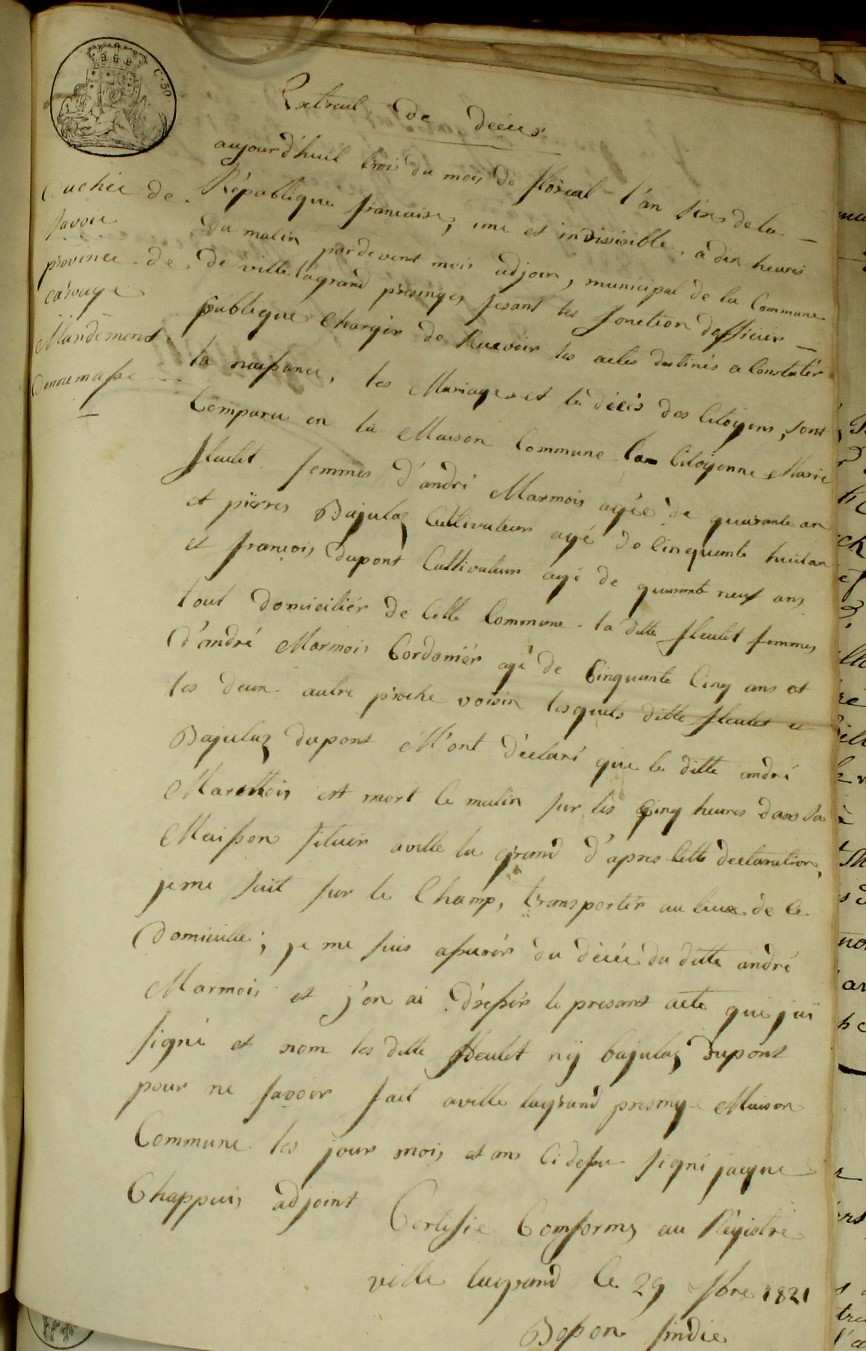 C. 50
Extrait de décès
Duchée de
Savoie
province de
carouge
Mandement
d'annemasse
aujourd'huit trois du mois de floréal l'an six de la
République francaise, une et indivisible a dix heures
du matin pardevent moi adjoin, municipal de la Commune
de ville lagrand presinges fesant les fonction dofficier
publique Charger de Recevoir les actes destinés a Constater
la naissance, les Mariages et les décés des Citoyens, sont
Comparu en la Maison Commune la Citoyenne Marie
fleulet femmes d'andré Marmois agée de quarante an
et pierres Bajulaz Cultivateur agé de Cinquante huit an
et francois dupont Cultivateur agé de quarante neuf ans
tout domicilier de Cette Commune la ditte fleulet femmes
d'andré Marmois Cordonier agé de Cinquante Cinq ans et
les deux autre proche voisin lesquels ditte fleulet e
Bajulaz dupont M'ont déclaré que le ditte andré
Marmois est mort le matin sur les Cinq heures dans sa
Maisson situér aville la grand d'apres Cette declaration,
je me suit sur le Champ, transporter au lieux de ce
Domicille; je me suis assurér du décée du ditte andré
Marmois et j'en ai dressér le present acte que j'ai
signé et nom les ditte fleulet nÿ bajulaz dupont
pour ne savoir fait aville lagrand presinge Maison
Commune les jour mois et ans Cidessu signé jacque
Chappuis adjoint
Certifié Comforme au Régistre
ville lagrand le 29 1821
Bosson sindic